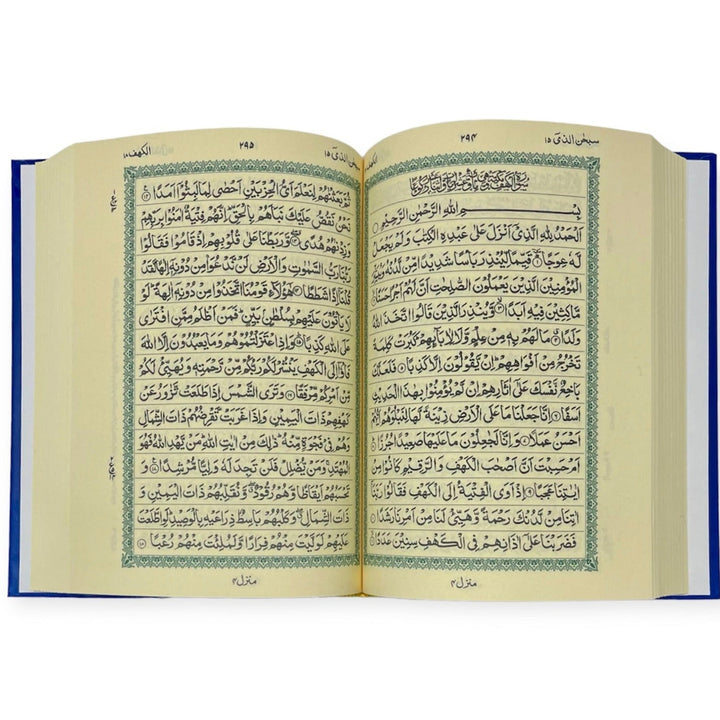 سبحٰن الذی ۱۵
۲۹۴
الکهف ۱۸
بِسْمِ اللهِ الرَّحْمٰنِ الرَّحِيْمِ
اَلْحَمْدُ لِلّٰهِ الَّذِيْٓ اَنْزَلَ عَلٰى عَبْدِهِ الْكِتٰبَ وَلَمْ يَجْعَلْ
لَّهٗ عِوَجًا ۜ ۱ قَيِّمًا لِّيُنْذِرَ بَاْسًا شَدِيْدًا مِّنْ لَّدُنْهُ وَيُبَشِّرَ
الْمُؤْمِنِيْنَ الَّذِيْنَ يَعْمَلُوْنَ الصّٰلِحٰتِ اَنَّ لَهُمْ اَجْرًا حَسَنًا ۲
مَّاكِثِيْنَ فِيْهِ اَبَدًا ۳ وَّيُنْذِرَ الَّذِيْنَ قَالُوا اتَّخَذَ اللّٰهُ
وَلَدًا ۴ مَا لَهُمْ بِهٖ مِنْ عِلْمٍ وَّلَا لِاٰبَآئِهِمْ ۭ كَبُرَتْ كَلِمَةً
تَخْرُجُ مِنْ اَفْوَاهِهِمْ ۭ اِنْ يَّقُوْلُوْنَ اِلَّا كَذِبًا ۵ فَلَعَلَّكَ
بَاخِعٌ نَّفْسَكَ عَلٰٓى اٰثَارِهِمْ اِنْ لَّمْ يُؤْمِنُوْا بِهٰذَا الْحَدِيْثِ
اَسَفًا ۶ اِنَّا جَعَلْنَا مَا عَلَى الْاَرْضِ زِيْنَةً لَّهَا لِنَبْلُوَهُمْ اَيُّهُمْ
اَحْسَنُ عَمَلًا ۷ وَاِنَّا لَجٰعِلُوْنَ مَا عَلَيْهَا صَعِيْدًا جُرُزًا ۸
اَمْ حَسِبْتَ اَنَّ اَصْحٰبَ الْكَهْفِ وَالرَّقِيْمِ كَانُوْا مِنْ
اٰيٰتِنَا عَجَبًا ۹ اِذْ اَوَى الْفِتْيَةُ اِلَى الْكَهْفِ فَقَالُوْا رَبَّنَآ
اٰتِنَا مِنْ لَّدُنْكَ رَحْمَةً وَّهَيِّئْ لَنَا مِنْ اَمْرِنَا رَشَدًا ۱۰
فَضَرَبْنَا عَلٰٓى اٰذَانِهِمْ فِي الْكَهْفِ سِنِيْنَ عَدَدًا ۱۱
منزل ۴
سبحٰن الذی ۱۵
۲۹۵
الکهف ۱۸
ثُمَّ بَعَثْنٰهُمْ لِنَعْلَمَ اَيُّ الْحِزْبَيْنِ اَحْصٰى لِمَا لَبِثُوْٓا اَمَدًا ۱۲
نَحْنُ نَقُصُّ عَلَيْكَ نَبَاَهُمْ بِالْحَقِّ ۭ اِنَّهُمْ فِتْيَةٌ اٰمَنُوْا بِرَبِّهِمْ
وَزِدْنٰهُمْ هُدًى ۱۳ وَّرَبَطْنَا عَلٰى قُلُوْبِهِمْ اِذْ قَامُوْا فَقَالُوْا
رَبُّنَا رَبُّ السَّمٰوٰتِ وَالْاَرْضِ لَنْ نَّدْعُوَا۟ مِنْ دُوْنِهٖٓ اِلٰهًا لَّقَدْ
قُلْنَآ اِذًا شَطَطًا ۱۴ هٰٓؤُلَآءِ قَوْمُنَا اتَّخَذُوْا مِنْ دُوْنِهٖٓ اٰلِهَةً ۭ لَوْلَا
يَاْتُوْنَ عَلَيْهِمْ بِسُلْطٰنٍۢ بَيِّنٍ ۭ فَمَنْ اَظْلَمُ مِمَّنِ افْتَرٰى
عَلَى اللّٰهِ كَذِبًا ۱۵ وَاِذِ اعْتَزَلْتُمُوْهُمْ وَمَا يَعْبُدُوْنَ اِلَّا اللّٰهَ
فَاْوٗٓا اِلَى الْكَهْفِ يَنْشُرْ لَكُمْ رَبُّكُمْ مِّنْ رَّحْمَتِهٖ وَيُهَيِّئْ لَكُمْ
مِّنْ اَمْرِكُمْ مِّرْفَقًا ۱۶ وَتَرَى الشَّمْسَ اِذَا طَلَعَتْ تَّزٰوَرُ عَنْ
كَهْفِهِمْ ذَاتَ الْيَمِيْنِ وَاِذَا غَرَبَتْ تَّقْرِضُهُمْ ذَاتَ الشِّمَالِ
وَهُمْ فِيْ فَجْوَةٍ مِّنْهُ ۭ ذٰلِكَ مِنْ اٰيٰتِ اللّٰهِ ۭ مَنْ يَّهْدِ اللّٰهُ فَهُوَ
الْمُهْتَدِ ۚ وَمَنْ يُّضْلِلْ فَلَنْ تَجِدَ لَهٗ وَلِيًّا مُّرْشِدًا ۱۷
وَتَحْسَبُهُمْ اَيْقَاظًا وَّهُمْ رُقُوْدٌ ۖ وَّنُقَلِّبُهُمْ ذَاتَ الْيَمِيْنِ وَ
ذَاتَ الشِّمَالِ ۖ وَكَلْبُهُمْ بَاسِطٌ ذِرَاعَيْهِ بِالْوَصِيْدِ ۭ لَوِ اطَّلَعْتَ
عَلَيْهِمْ لَوَلَّيْتَ مِنْهُمْ فِرَارًا وَّلَمُلِئْتَ مِنْهُمْ رُعْبًا ۱۸
منزل ۴